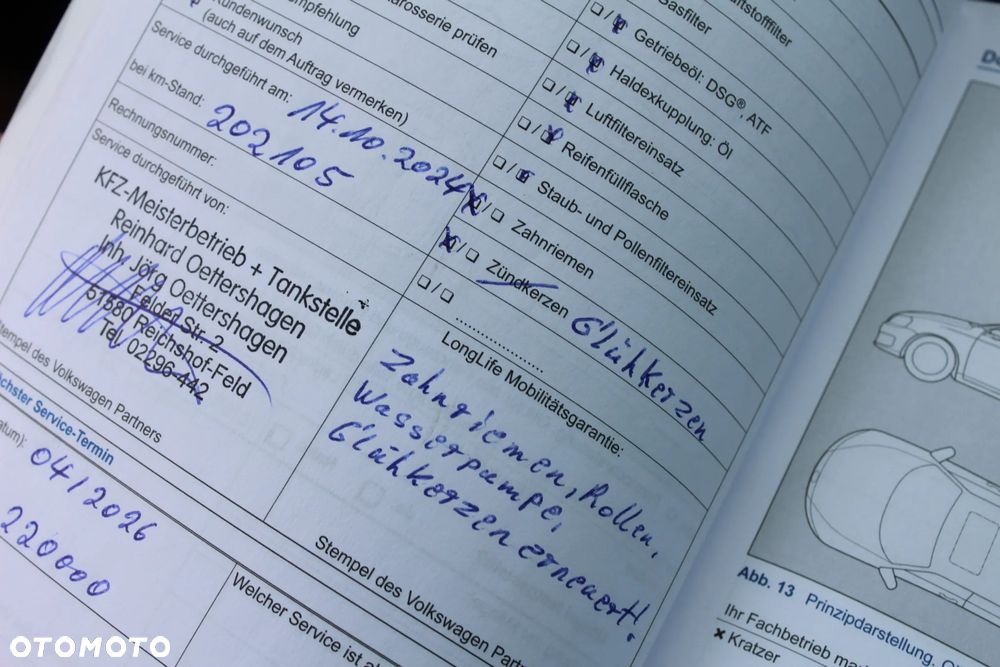 mpfehlung
Kundenwunsch
(auch auf dem Auftrag vermerken)
Service durchgeführt am: 14.10.2024
bei km-Stand: 202105
Rechnungsnummer:
Service durchgeführt von:
KFZ-Meisterbetrieb + Tankstelle
Reinhard Oettershagen
Inh. Jörg Oettershagen
Felder Str. 2
51580 Reichshof-Feld
Tel. 02296-442
Stempel des Volkswagen Partners
ächster Service-Termin
atum): 04/2026
220000
arosserie prüfen
ftstofffilter
Gasfilter
Getriebeöl: DSG®, ATF
Haldexkupplung: Öl
Luftfiltereinsatz
Reifenfüllflasche
Staub- und Pollenfiltereinsatz
Zahnriemen
Zündkerzen Glühkerzen
LongLife Mobilitätsgarantie:
Zahnriemen, Rollen,
Wasserpumpe,
Glühkerzen erneuert!
Stempel des Volkswagen Partn
Welcher Service ist al
Abb. 13 Prinzipdarstellung,
Ihr Fachbetrieb mac
× Kratzer
OTOMOTO